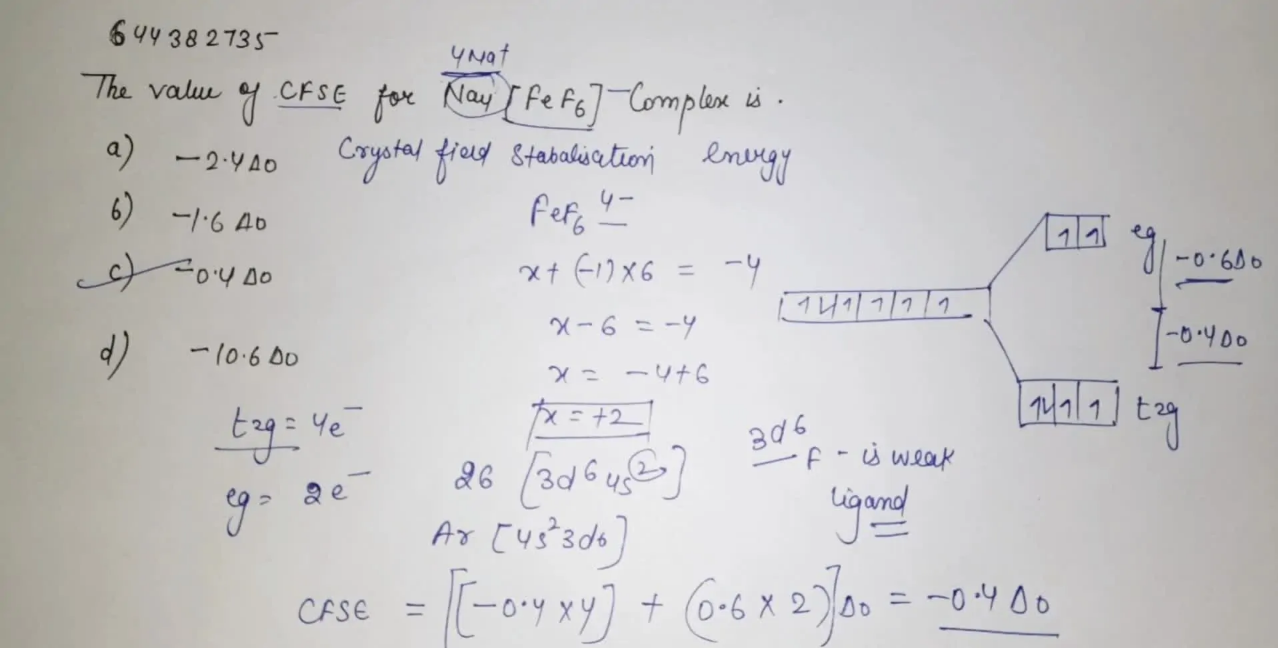 644382735
4Na+
The value of CFSE for Na4 [FeF6] Complex is.
a) -2.4Δo Crystal field Stabalisation energy
b) -1.6 Δo FeF6 4-
c) -0.4 Δo x+ (-1)x6 = -4
x-6 = -4
d) -10.6 Δo x = -4+6
x = +2
t2g = 4e-
eg = 2e-
26 [3d6 4s2]
Ar [4s2 3d6]
3d6
F - is weak
ligand
1 1 eg -0.6Δo
1L 1 1 1 1
-0.4Δo
1L 1 1 t2g
CFSE = [[-0.4 x 4] + (0.6 x 2)]Δo = -0.4 Δo